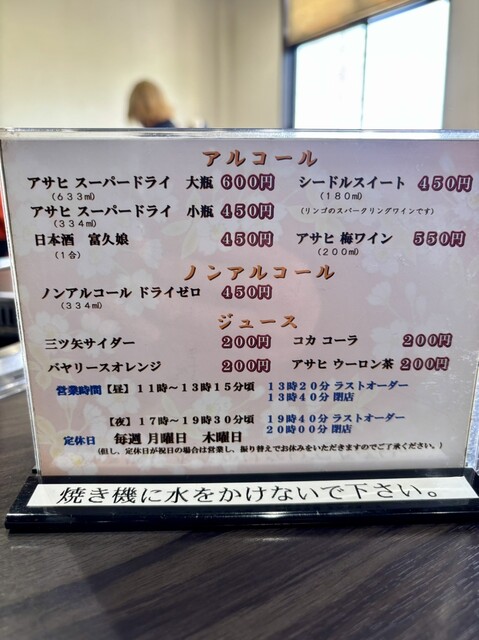 アルコール
アサヒ スーパードライ 大瓶 600円 シードルスイート 450円
(633ml) (180ml)
アサヒ スーパードライ 小瓶 450円 (リンゴのスパークリングワインです)
(334ml)
日本酒 富久娘 450円 アサヒ 梅ワイン 550円
(1合) (200ml)
ノンアルコール
ノンアルコール ドライゼロ 450円
(334ml)
ジュース
三ツ矢サイダー 200円 コカ コーラ 200円
バヤリースオレンジ 200円 アサヒ ウーロン茶 200円
営業時間【昼】11時〜13時15分頃 13時20分 ラストオーダー
13時40分 閉店
【夜】17時〜19時30分頃 19時40分 ラストオーダー
20時00分 閉店
定休日 毎週 月曜日 木曜日
(但し、定休日が祝日の場合は営業し、振り替えでお休みをいただきますのでご了承ください。)
焼き機に水をかけないで下さい。